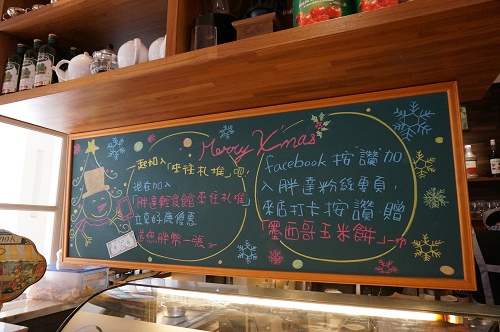 Merry X'mas
一起加入「來往扎堆」吧,
現在加入
「胖達輕食館 來往扎堆」
立享好康優惠
送您胖幣一張
facebook 按"讚"加
入胖達粉絲專頁,
來店打卡按讚,贈
「墨西哥玉米餅」一份